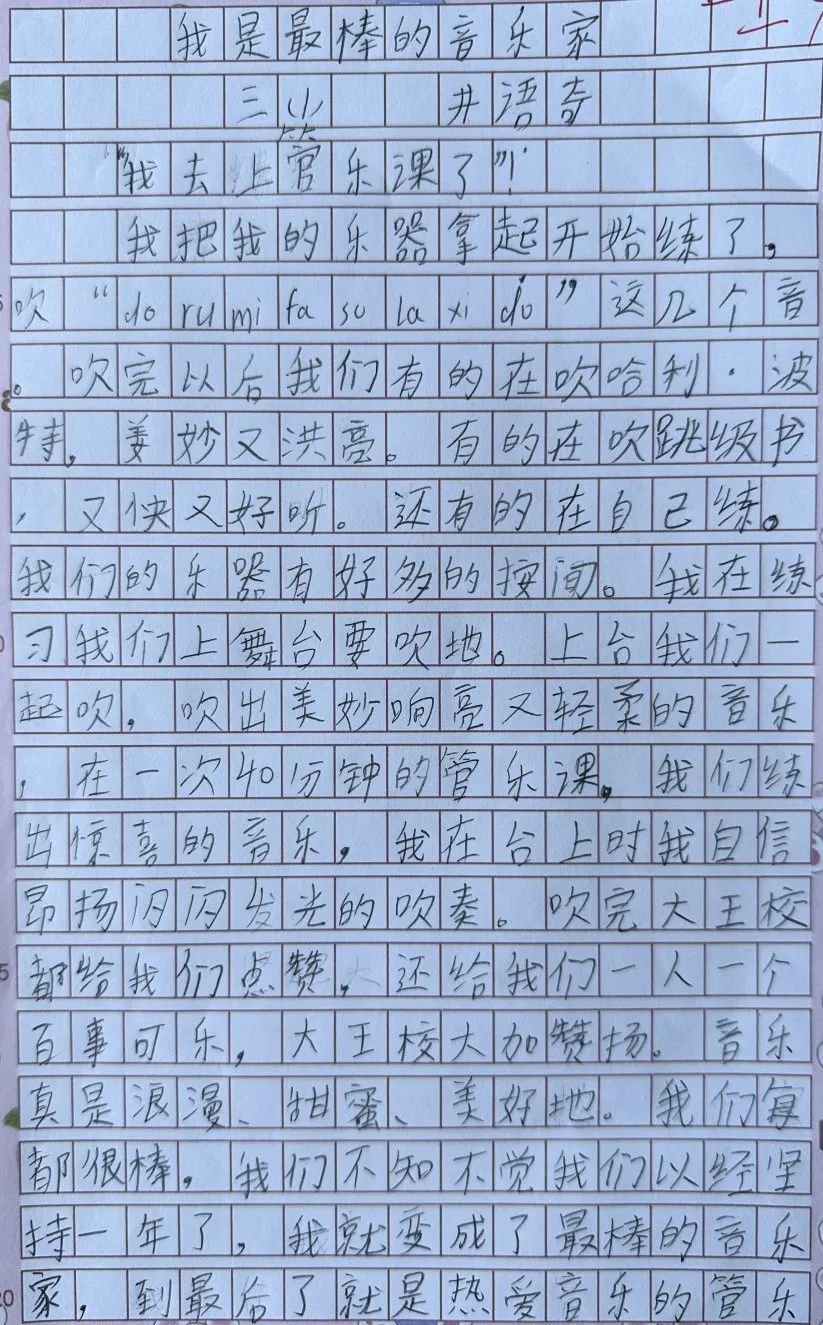 我是最棒的音乐家
三(1) 井语奇
“我去上管乐课了”!
我把我的乐器拿起开始练了,
吹“do ru mi fa so la xi do”这几个音
。吹完以后我们有的在吹哈利·波
特,美妙又洪亮。有的在吹跳级书
,又快又好听。还有的在自己练。
我们的乐器有好多的按间。我在练
习我们上舞台要吹地。上台我们一
起吹,吹出美妙响亮又轻柔的音乐
,在一次40分钟的管乐课,我们练
出惊喜的音乐,我在台上时我自信
昂扬闪闪发光的吹奏。吹完大王校
都给我们点赞,还给我们一人一个
百事可乐,大王校大加赞扬。音乐
真是浪漫、甜蜜、美好地。我们每
都很棒,我们不知不觉我们以经坚
持一年了,我就变成了最棒的音乐
家,到最后了就是热爱音乐的管乐